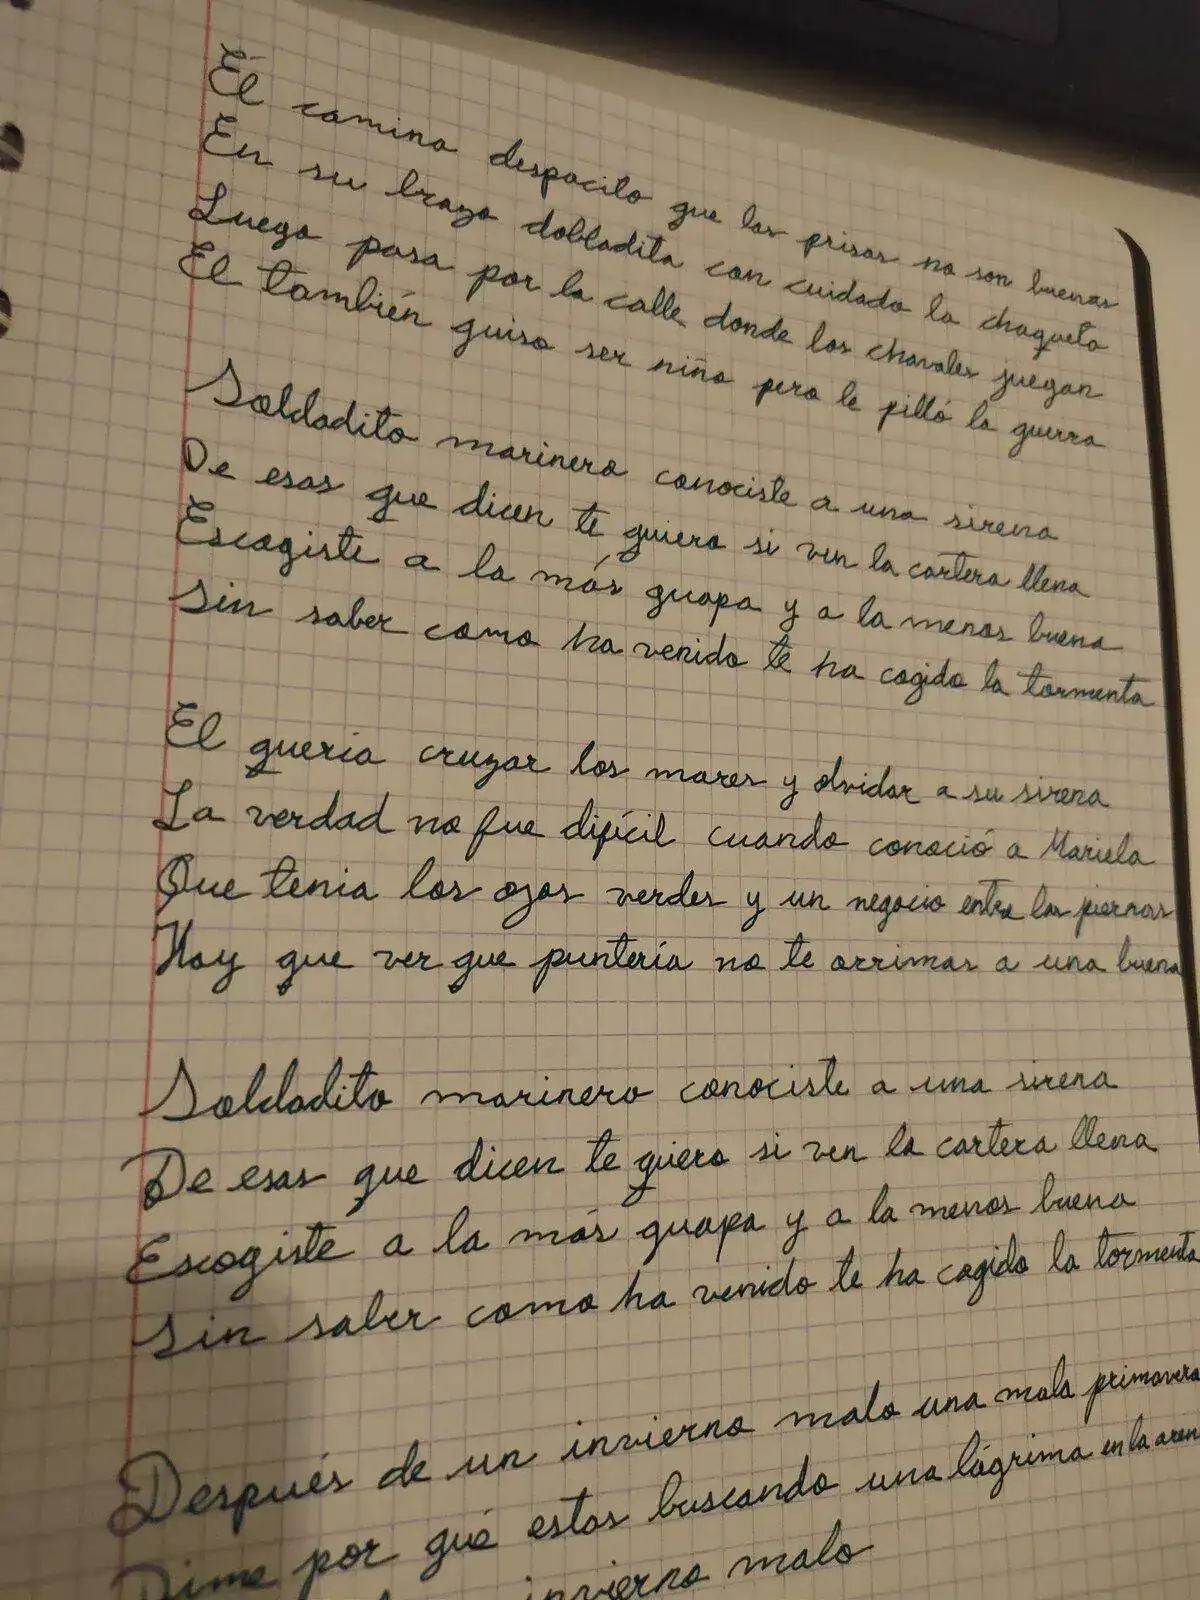 Él camina despacito que las prisas no son buenas
En su brazo dobladita con cuidado la chaqueta
Luego pasa por la calle donde los chavales juegan
El también quiso ser niño pero le pilló la guerra
Soldadito marinero conociste a una sirena
De esas que dicen te quiero si ven la cartera llena
Escogiste a la más guapa y a la menos buena
Sin saber como ha venido te ha cogido la tormenta
El quería cruzar los mares y olvidar a su sirena
La verdad no fue difícil cuando conoció a Mariela
Que tenia los ojos verdes y un negocio entre las piernas
Hay que ver que puntería no te arrimas a una buena
Soldadito marinero conociste a una sirena
De esas que dicen te quiero si ven la cartera llena
Escogiste a la más guapa y a la menos buena
Sin saber como ha venido te ha cogido la tormenta
Después de un invierno malo una mala primavera
Dime por qué estas buscando una lágrima en la aren
invierno malo